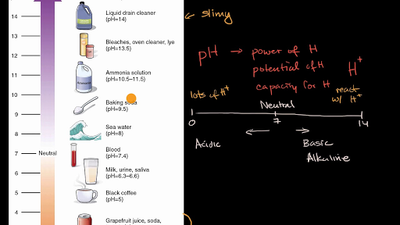 14
Liquid drain cleaner
(pH=14)
13
Bleaches, oven cleaner, lye
(pH=13.5)
12
11
Ammonia solution
(pH=10.5–11.5)
10
Baking soda
(pH=9.5)
9
8
Sea water
(pH=8)
7
Neutral
Blood
(pH=7.4)
6
Milk, urine, saliva
(pH=6.3–6.6)
5
Black coffee
(pH=5)
4
Grapefruit juice, soda,
slimy
pH → power of H
potential of H
capacity for H
H+
lots of H+
react
w/ H+
Neutral
0
7
14
Acidic
Basic
Alkaline